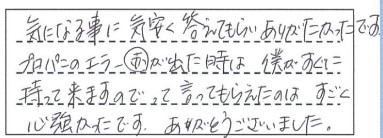 気になる事に気安く答えてもらいありがたかったです
プロパンのエラー㊥が出た時は 僕がすぐに
持って来ますのでって言ってもらえたのは すごく
心強かったです。ありがとうございました。